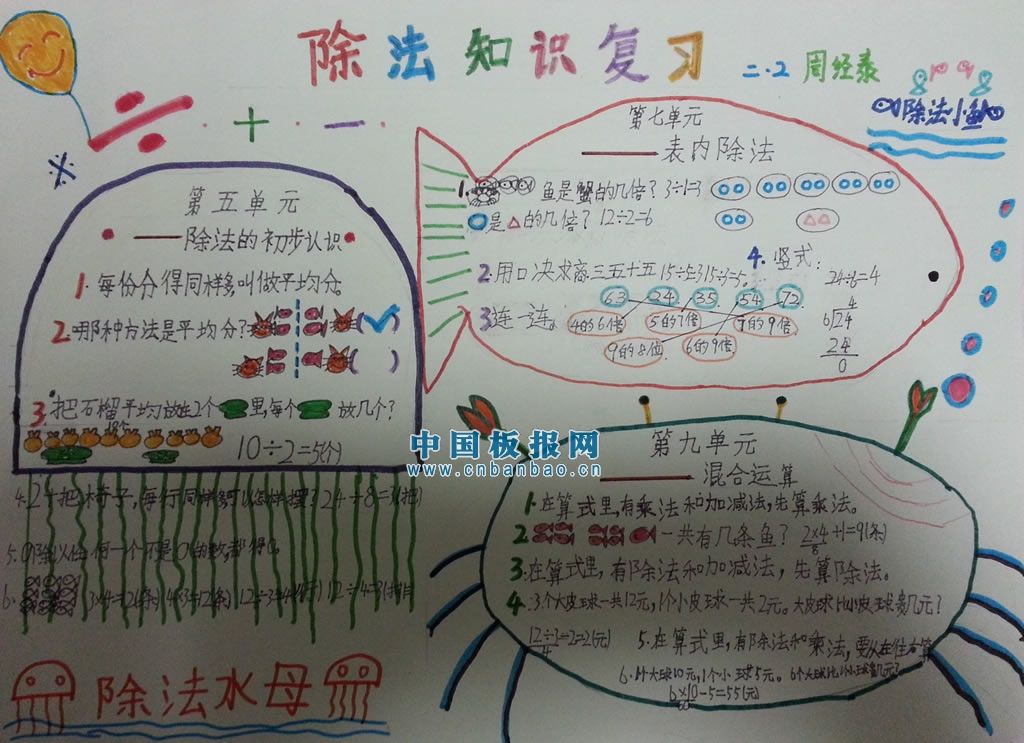 除法知识复习
二.2 周经泰
除法小鱼
÷ · + · － ·
×
第五单元
——除法的初步认识
1. 每份分得同样多叫做平均分。
2. 哪种方法是平均分? (✓)
( )
3. 把石榴平均放在2个 里,每个 放几个?
10÷2=5(个)
4. 24把椅子,每行同样多,可以怎样摆? 24÷8=3(把)
5. 0除以任何一个不是0的数,都得0。
6. 3×4=12(条) 4×3=12(条) 12÷3=4(行) 12÷4=3(排)
除法水母
第七单元
——表内除法
1. 鱼是蟹的几倍? 3÷1=3
是△的几倍? 12÷2=6
2. 用口决求商 三五十五 15÷5=3 15÷3=5。
3. 连一连。
63 24 35 54 72
4的6倍 5的7倍 7的9倍
9的8倍 6的9倍
4. 竖式:
24÷6=4
4
6 24
24
0
中国板报网
www.cnbanbao.cn
第九单元
——混合运算
1. 在算式里,有乘法和加减法,先算乘法。
2. 一共有几条鱼? 2×4+1=9(条)
8
3. 在算式里,有除法和加减法,先算除法。
4. 3个大皮球一共12元,1个小皮球一共2元。大皮球比小皮球贵几元?
12÷3-2=2(元)
4
5. 在算式里,有除法和乘法,要从左往右算
6. 1个大球10元,1个小球5元。6个大球比1个小球贵几元?
6×10-5=55(元)
60